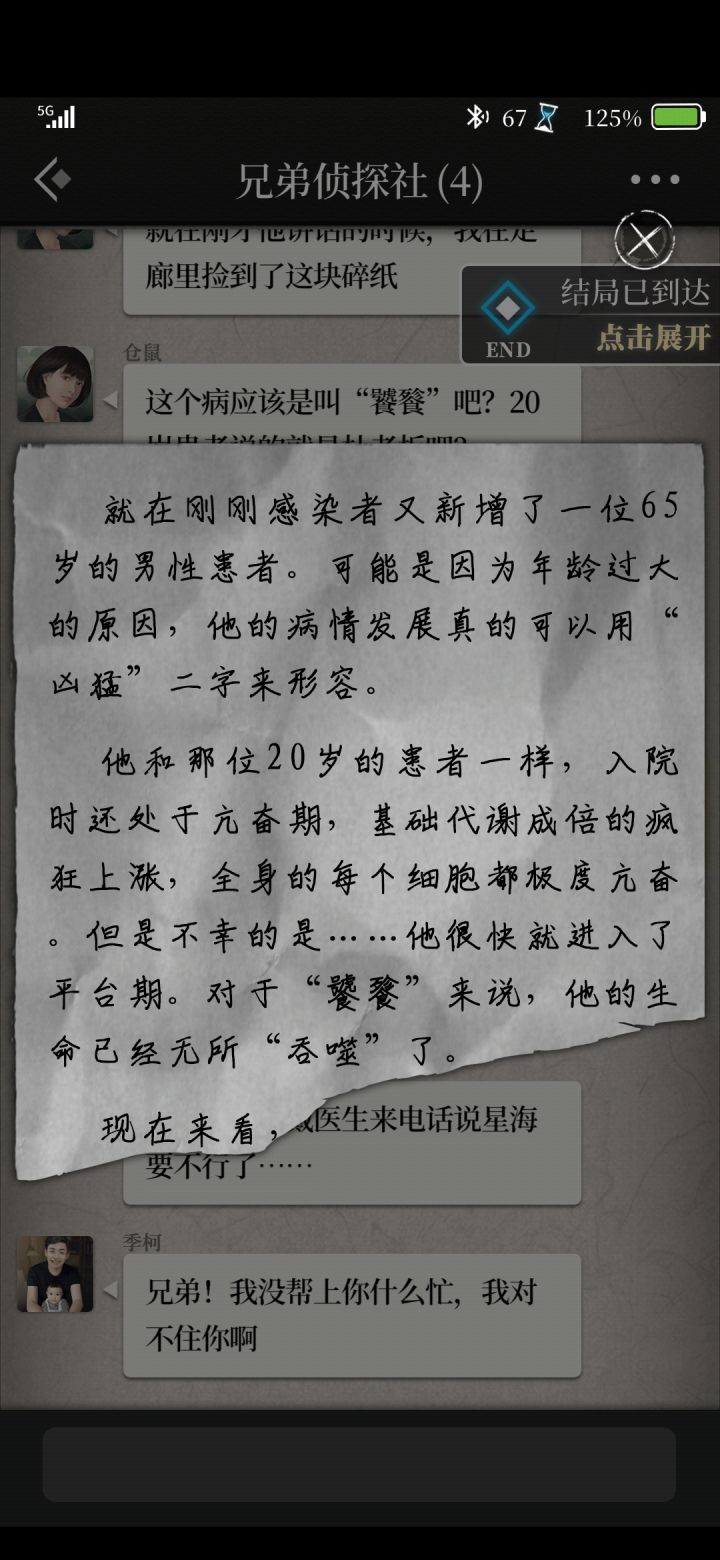 5G
67
125%
兄弟侦探社 (4)
廊里捡到了这块碎纸
结局已到达
END
点击展开
仓鼠
这个病应该是叫“饕餮”吧？20
就在刚刚感染者又新增了一位65
岁的男性患者。可能是因为年龄过大
的原因，他的病情发展真的可以用“
凶猛”二字来形容。
他和那位20岁的患者一样，入院
时还处于亢奋期，基础代谢成倍的疯
狂上涨，全身的每个细胞都极度亢奋
。但是不幸的是……他很快就进入了
平台期。对于“饕餮”来说，他的生
命已经无所“吞噬”了。
现在来看，
医生来电话说星海
要不行了……
季柯
兄弟！我没帮上你什么忙，我对
不住你啊